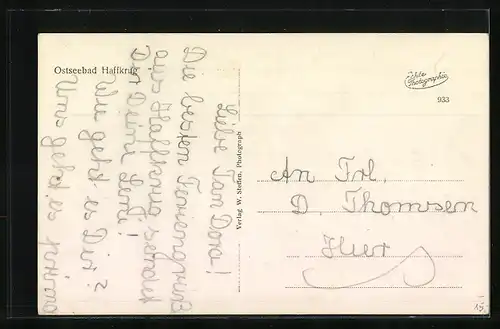 Ostseebad Haffkrug
Echte
Photographie
933
Verlag W. Steffen, Photograph
Liebe Tan Dora!
Die besten Feriengrüße
aus Haffkrug sendet
Dir Deine Gerti!
Wie geht es Dir?
Uns geht es prima
An Frl.
D. Thomsen
Hier